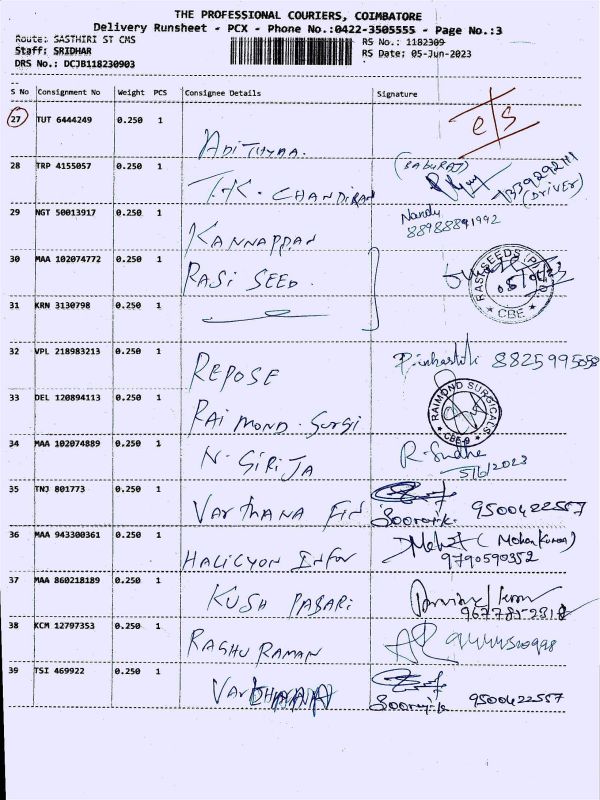 THE PROFESSIONAL COURIERS, COIMBATORE
Delivery Runsheet - PCX - Phone No.:0422-3505555 - Page No.:3
Route: SASTHIRI ST CMS
RS No.: 1182309
Staff: SRIDHAR
RS Date: 05-Jun-2023
DRS No.: DCJB118230903
S No Consignment No Weight PCS Consignee Details Signature
27 TUT 6444249 0.250 1 ADITHYAA. e/s
28 TRP 4155057 0.250 1 T.K. CHANDIRAN (BABURAJ) (DRIVER)
29 NGT 50013917 0.250 1 KANNAPPAN Nandu
30 MAA 102074772 0.250 1 RASI SEED. RASI SEEDS CBE
31 KRN 3130798 0.250 1
32 VPL 218983213 0.250 1 REPOSE
33 DEL 120894113 0.250 1 RAIMOND. Surgi RAIMOND SURGICALS CBE-9
34 MAA 102074889 0.250 1 N. GIRIJA R. Sudha
5/6/2023
35 TNJ 801773 0.250 1 VARTHANA FIN 9500422557
36 MAA 943300361 0.250 1 HALICYON INFOR (Mohan Kumar)
9790590352
37 MAA 860218189 0.250 1 KUSH PABARI
38 KCM 12797353 0.250 1 RAGHU RAMAN
39 TSI 469922 0.250 1 9500422557